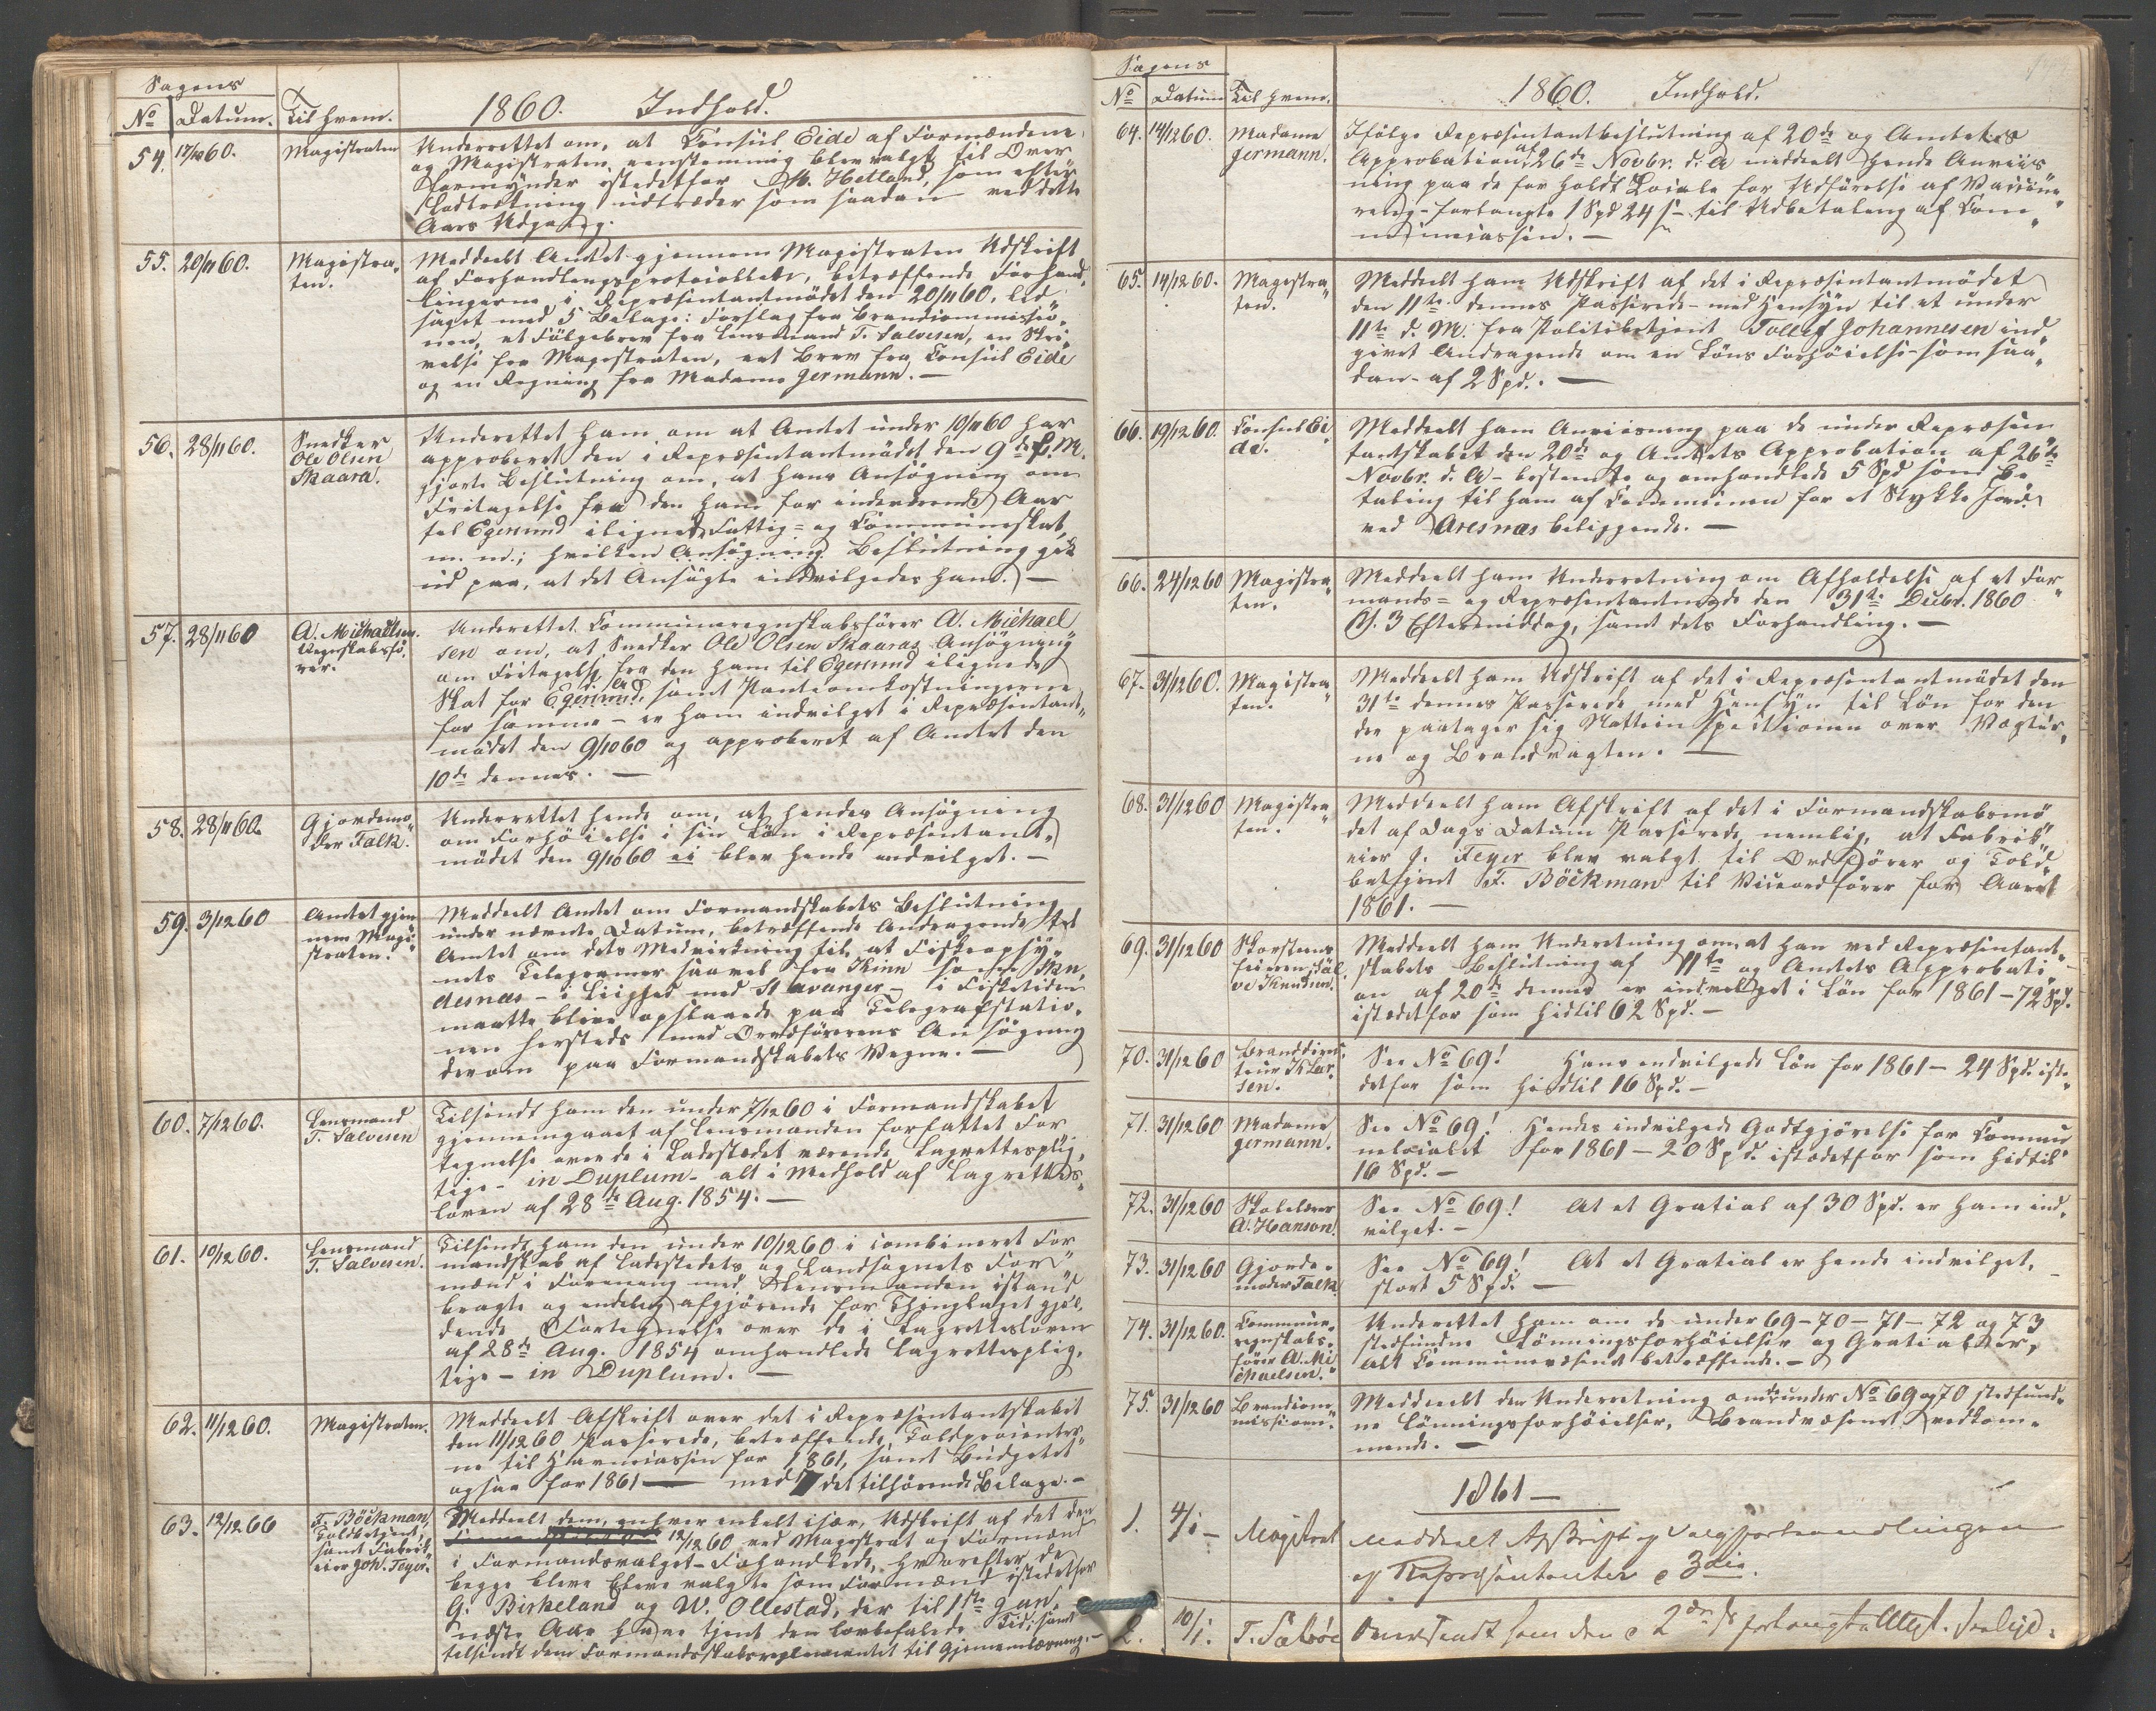 Sagens
No Datum. Til hvem. 1860. Indhold.
54. 17/10 60. Magistraten Underrettet om, at Consul Eide af Formændene
og Magistraten eenstemmig blev valgt til Over
formynder istedetfor M. Hetland, som efter
Lodtrækning udtræder som saadan ved dette
Aars Udgang.
55. 20/11 60. Magistra„
ten.
Meddeelt Amtet gjennem Magistraten Udskrift
af Forhandlingsprotocollen, betræffende Forhand„
lingerne i Repræsentantmødet den 20/11 60, led„
saget med 5 Bilage: Forslag fra Brandcommissio„
nen, et Følgebrev fra Lensmand T. Salvesen, en Skri„
velse fra Magistraten, eet Brev fra Consul Eide
og en Regning fra Madame Germann. —
56. 28/11 60. Snedker
Ole Olsen
Skaara.
Underettet ham om at Amtet under 10/11 60 har
approberet den i Repræsentantmødet den 9de f. M.
gjorte Beslutning om, at hans Ansøgning om
Fritagelse fra den ham for indeværende Aar
til Egersund ilignede Fattig= og Communeskat
m. m.; hvilken Ansøgning Beslutning gik
ud paa, at det Ansøgte indvilgedes ham. —
57. 28/11 60 A. Michaelsen
Regnskabsfø„
rer.
Underettet Communeregnskabsfører A. Michael
sen om, at Snedker Ole Olsen Skaaras Ansøgning
om Fritagelse fra den ham til Egersund ilignede
Skat for d. A. Egersund, samt Pantomkostningerne
for samme – er ham indvilget i Repræsentant„
mødet den 9/10 60 og approberet af Amtet den
10de dennes. —
58. 28/11 60. Gjordemo„
der Falk.
Underrettet hende om, at hendes Ansøgning
om Forhøielse i sin Løn i Repræsentant„
mødet den 9/10 60 ei blev hende indvilget. —
59. 3/12 60 Amtet gjen
nem Magi„
straten.
Meddeelt Amtet om Formandskabets Beslutning
under nævnte Datum, betræffende Andragende til
Amtet om dets Medvirkning til, at Fiskeopsy„
nets Telegramer saavel fra Kinn som Sku„
desnæs – i Liighed med Stavanger – i Fisketiden
maatte blive opslaaede paa Telegrafstatio„
nen hersteds med Ordførerens Ansøgning
derom paa Formandskabets Vegne. —
60. 7/12 60. Lensmand
T. Salvesen
Tilsendt ham den under 7/12 60 i Formandskabet
gjennemgaaet af Lensmanden forfattet For„
tegnelse over de i Ladestædet værende Lagrettesplig„
tige – in Duplum – alt i Medhold af Lagrettes„
loven af 28de Aug. 1854. —
61. 10/12 60. Lensmand
T. Salvesen.
Tilsendt ham den under 10/12 60 i combineret For
mandskab af Ladestedets og Landsognets For„
mænd i Forening med Lensmanden istand„
bragte og endelig afgjørende for Thinglaget gjæl„
dende Fortegnelse over de i Lagretteslov​en
af 28de Aug. 1854 omhandlede Lagrettesplig„
tige – in Duplum. —
62. 11/12 60. Magistraten. Meddeelt Afskrift over det i Repræsentantskabet
den 11/12 60 Passerede, betræffende Toldprocenter„
ne til Havnecassen for 1861, samt Budgetet
ogsaa for 1861 — med det tilhørende Belage. –
63. 12/12 60 F. Böckman,
Toldbetjent,
samt Fabrik„
eier Joh. Feyer.
Meddeelt dem, enhver enkelt især, Udskrift af det den
12/12 60 ved Magistrat og Formænd
i Formandsvalget Forhandlede, hvorefter de
begge bleve valgte som Formænd istedetfor
G. Birkeland og W. Ollestad, der til 1ste Jan.
næste Aar have tjent den lovbefalede Tid; samt
tilsendt dem Formandsskabsreglementet til Gjennemlæsning. –
Sagens
No Datum Til hvem. 1860. Indhold.
64. 14/12 60. Madame
Germann.
Ifølge Repræsentantbeslutning af 20de og Amtets
Approbation af 26de Novbr. d. A meddeelt hende Anviis
ning paa de for holdt Locale for Udførelse af Vaccine„
rening forlangte 1 Spd 24 s – til Udbetaling af Com„
munecassen. —
65. 14/12 60. Magistra„
ten.
Meddeelt ham Udskrift af det i Repræsentantmødet
den 11te dennes Passerede – med Hensyn til et under
11te d. M. fra Politibetjent Tollef Johannesen ind„
givet Andragende om en Løns Forhøielse som saa„
dan – af 2 Spd. —
66. 19/12 60. Consul Ei„
de.
Meddeelt ham Anviisning paa de under Repræsen
tantskabet den 20de og Amtets Approbation af 26de
Novbr. d. A – bestemte og omhandlede 5 Spd som Be„
taling til ham af Communen for et Stykke Jord
ved Aresnæs beliggende. —
66. 24/12 60 Magistra„
ten.
Meddeelt ham Underretning om Afholdelse af et For„
mands= og Repræsentantmøde den 31te Decbr. 1860
Kl. 3 Eftermiddag, samt dets Forhandling. —
67. 31/12 60. Magistra„
ten.
Meddeelt ham Udskrift af det i Repræsentantmødet den
31te dennes Passerede med Hensyn til Løn for den
der paatager sig Natteinspectionen over Vægter„
ne og Brandvagten. —
68. 31/12 60 Magistra„
ten.
Meddeelt ham Afskrift af det i Formandskabsmø„
det af Dags Datum Passerede, nemlig, at Fabrik„
eier J. Feyer blev valgt til Ordfører og Told„
betjent F. Böckman til Viceordfører for Aaret
1861. —
69. 31/12 60 Skorsteens
feieren Sal„
ve Knudsen.
Meddeelt ham Underetning om at han ved Repræsentant„
skabets Beslutning af 11te og Amtets Approbati„
on af 20de dennes er indvilget i Løn for 1861 – 72 Spd.
istædetfor som hidtil 62 Spd. –
70. 31/12 60 Branddirec„
teur K Lar„
sen.
See No 69! Hans indvilgede Løn for 1861 – 24 Spd. iste„
detfor som hidtil 16 Spd. –
71. 31/12 60 Madame
Germann.
See No 69! Hendes indvilgede Godtgjørelse for Commu
nelocalet for 1861 – 20 Spd. istædetfor som hidtil
16 Spd. –
72. 31/12 60 Skolelærer
A. Hanson.
See No 69! At et Gratial af 30 Spd. er ham ind„
vilget. –
73. 31/12 60 Gjorde„
moder Falk.
See No 69! At et Gratial er hende indvilget,
stort 5 Spd. —
74. 31/12 60. Commune„
regnskabs„
fører A. Mi„
chaelsen.
Underettet ham om de under 69 – 70 – 71 – 72 og 73
stedfundne Lønningsforhøielser og Gratialer,
alt Communevæsenet betræffende. –
75. 31/12 60 Brandcom„
missionen.
Meddeelt den Underretning om de under No 69 og 70 stedfund„
ne Lønningsforhøielser, Brandvæsenet vedkom„
mende. —
1861 –
1. 4/1 – Magistrat Meddeelt Afskrift af Valgforhandlingen
af Repræsentanter d 3die.
2. 10/1. Oversendt ham den d 2den ds forlangte Attest.